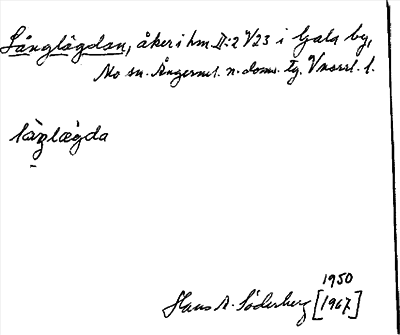 Långlägdan, åker i hm. II:2 4/23 i Gala by,
Mo sn. Ångerml. n. doms. tg. Vnorrl. l.
làŋlæ̀gda
1950
Hans A. Söderberg [1967]